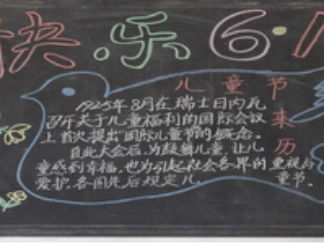 快乐6·1
儿童节
来历
1925年8月在瑞士日内瓦
关于儿童福利的国际会议
上首次提出"国际儿童节的概念。
自此大会后,为鼓舞儿童,让儿
童感到幸福,也为引起社会各界的重视与
爱护,各国先后规定儿童节。